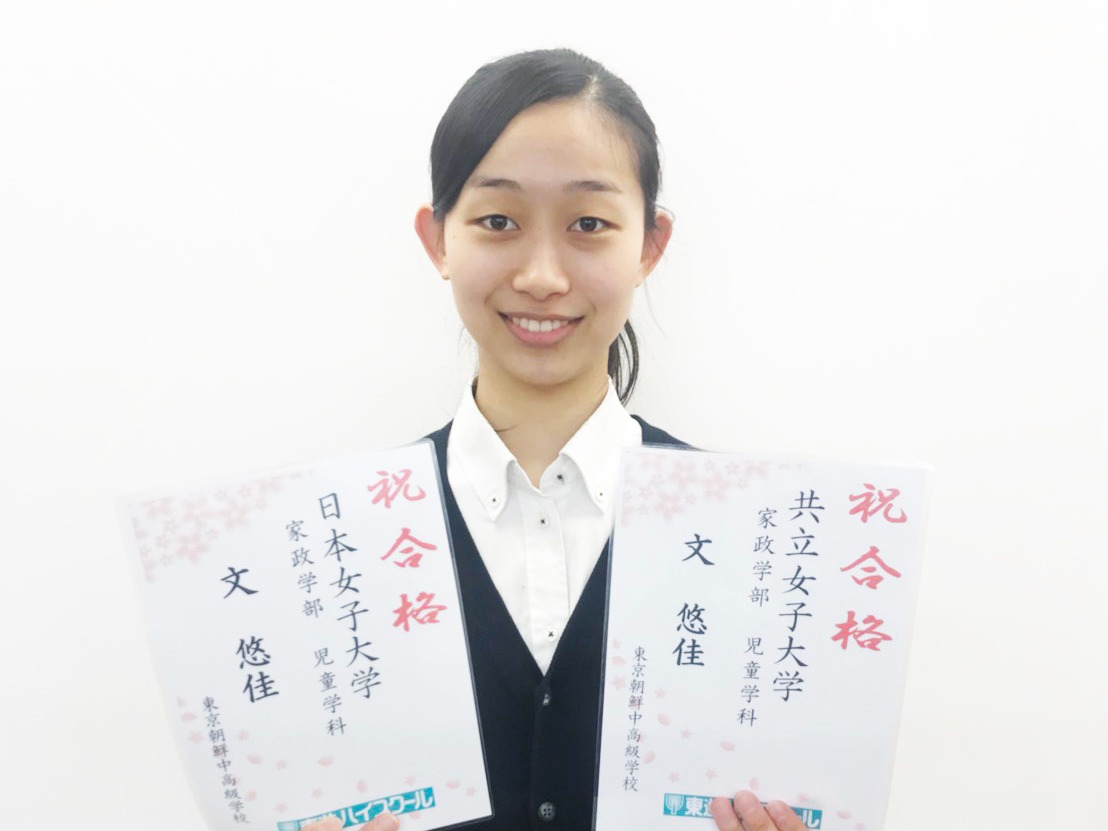 祝合格
日本女子大学
家政学部 児童学科
文 悠佳
東京朝鮮中高級学校
ハイスクール
祝合格
共立女子大学
家政学部 児童学科
文 悠佳
東京朝鮮中高級学校
東進 ール